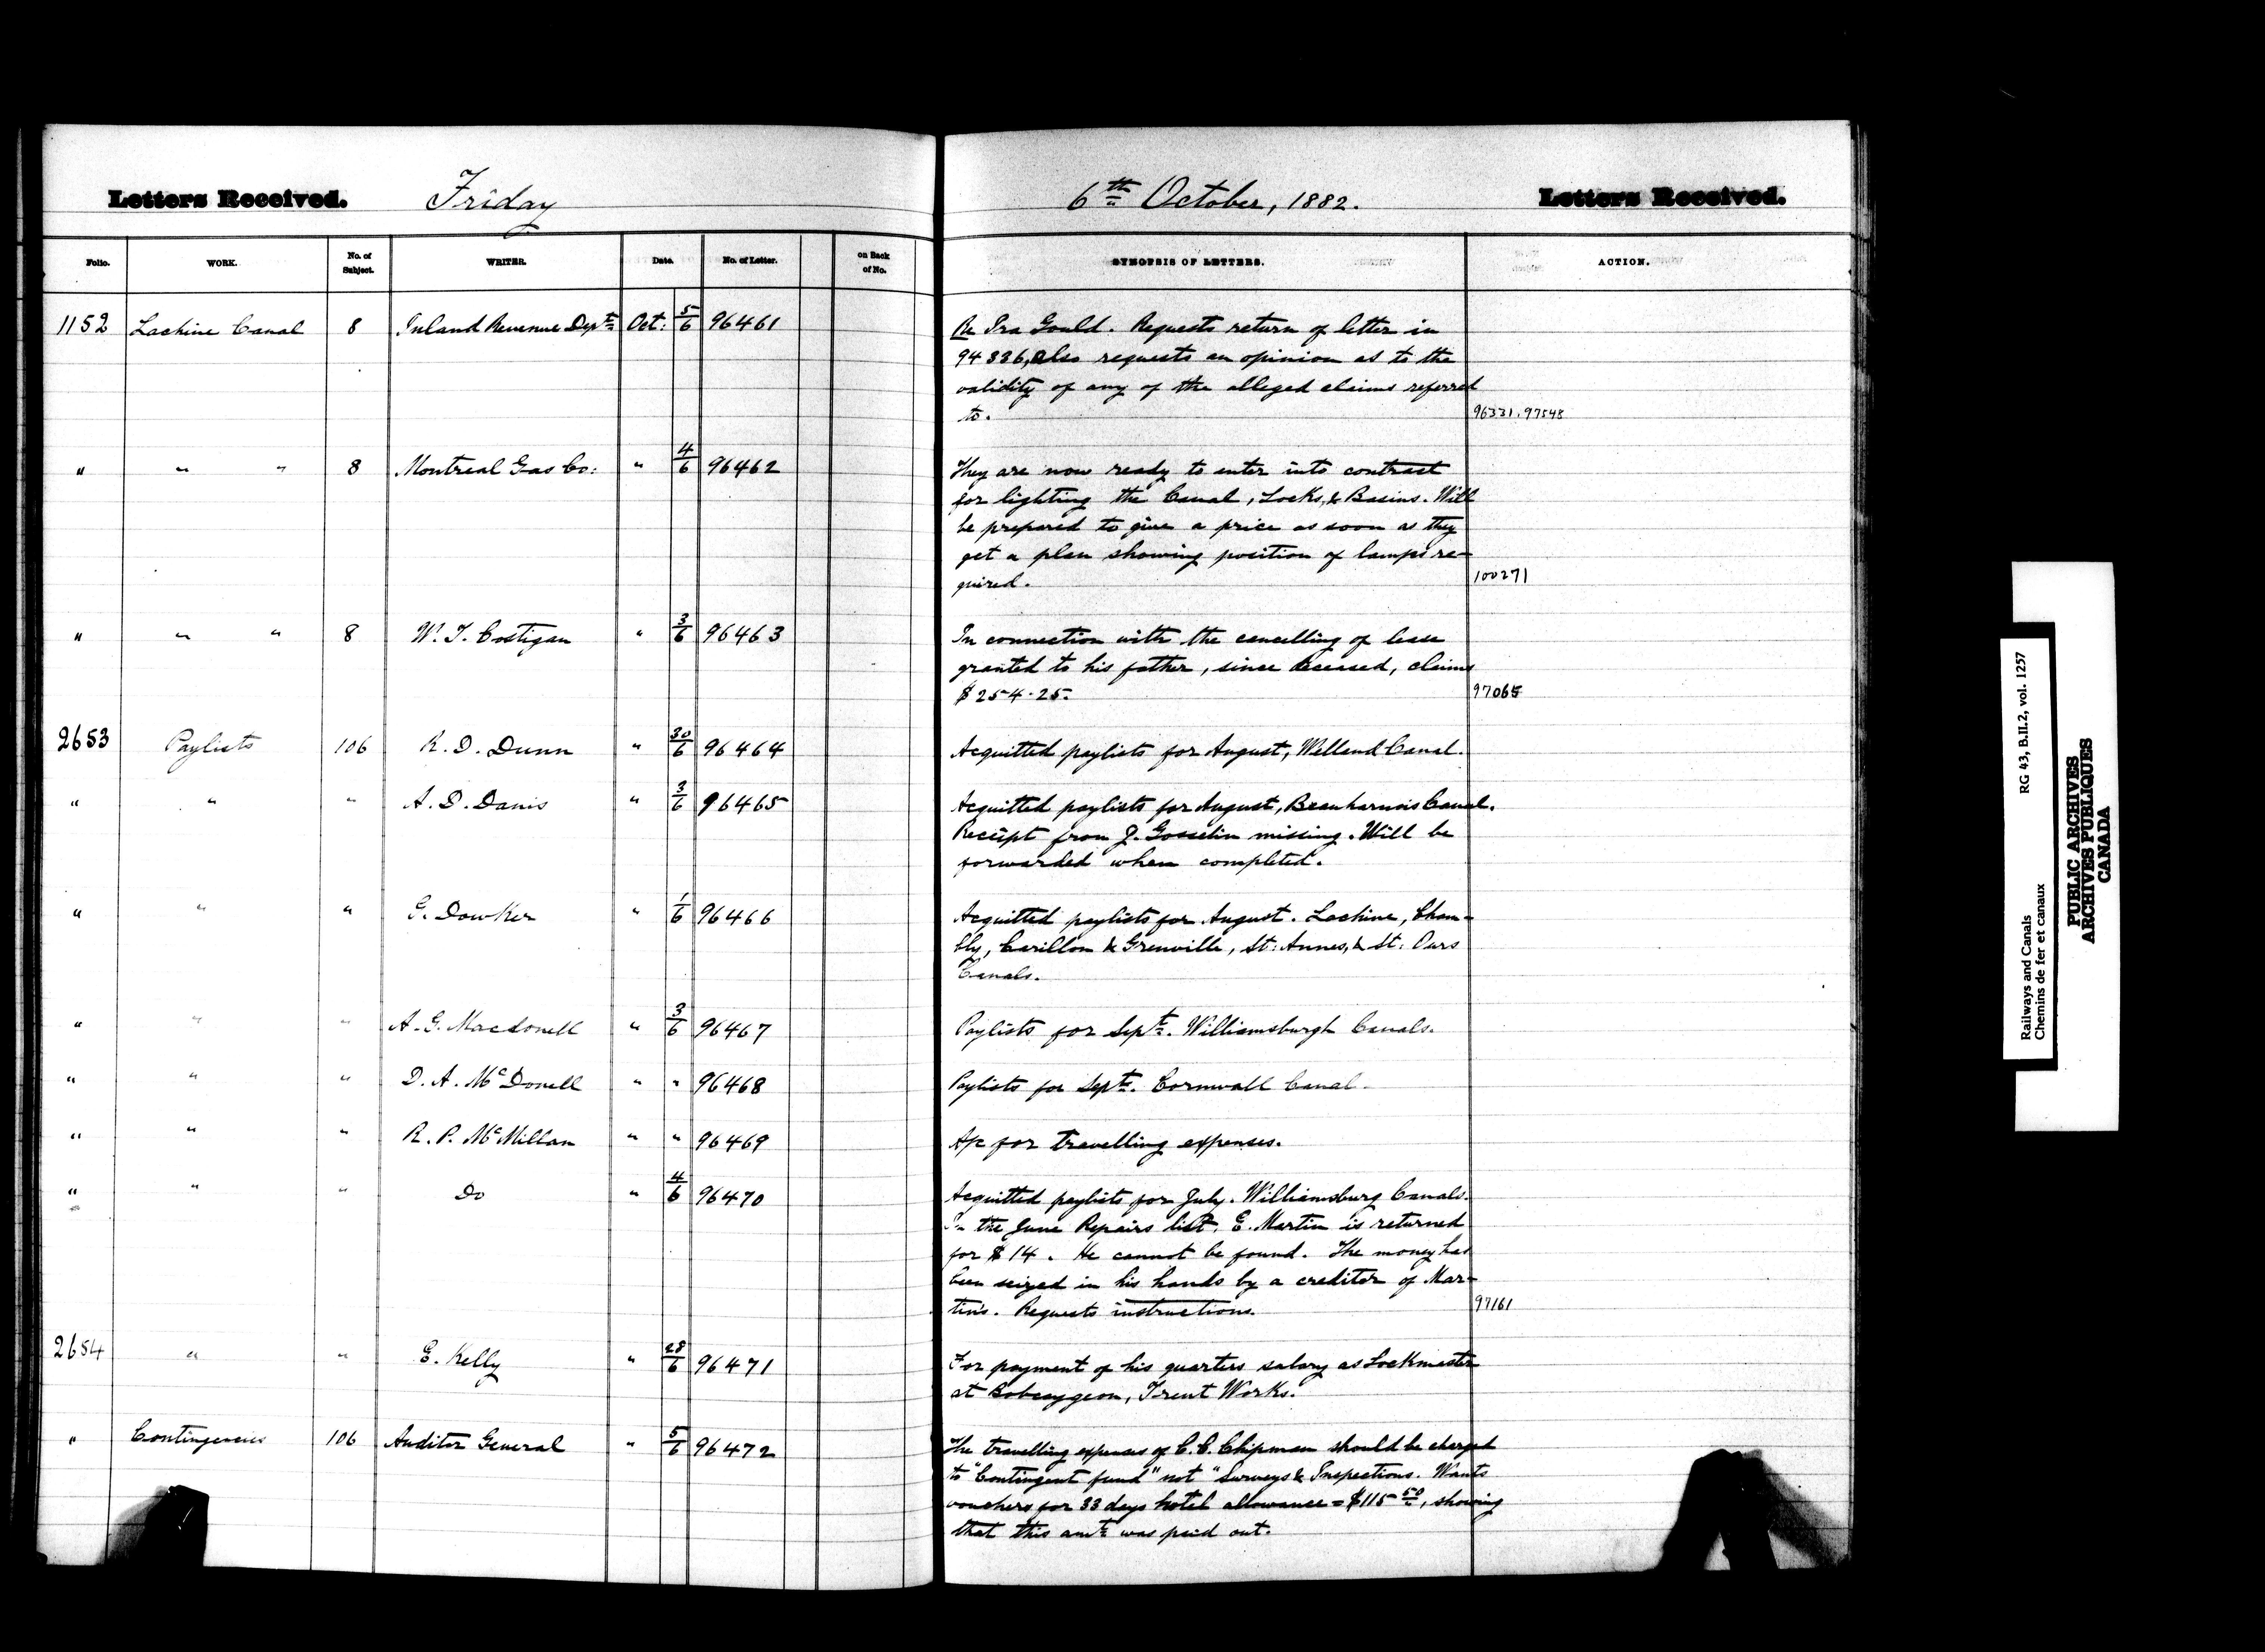 Letters Received. Friday 6th October, 1882. Letters Received.
Folio. WORK. No. of Subject. WRITER. Date. No. of Letter. on Back of No. SYNOPSIS OF LETTERS. ACTION.
1152 Lachine Canal 8 Inland Revenue Dept Oct: 5/6 96461 Re Ira Gould. Requests return of letter in
94336, also requests an opinion as to the
validity of any of the alleged claims referred
to. 96331. 97548
" " " 8 Montreal Gas Co: " 4/6 96462 They are now ready to enter into contract
for lighting the Canal, Locks, & Basins. Will
be prepared to give a price as soon as they
get a plan showing position of lamps re-
quired. 100271
" " " 8 W. J. Costigan " 3/6 96463 In connection with the cancelling of lease
granted to his father, since deceased, claims
$254.25. 97065
2653 Paylists 106 R. D. Dunn " 30/6 96464 Acquitted paylists for August, Welland Canal.
" " " A. D. Danis " 3/6 96465 Acquitted paylists for August, Beauharnois Canal.
Receipt from J. Gosselin missing. Will be
forwarded when completed.
" " " G. Dowker " 1/6 96466 Acquitted paylists for August. Lachine, Cham-
bly, Carillon & Grenville, St: Annes, & St: Ours
Canals.
" " " A. G. Macdonell " 3/6 96467 Paylists for Sept. Williamsburgh Canals.
" " " D. A. McDonell " " 96468 Paylists for Sept. Cornwall Canal.
" " " R. P. McMillan " " 96469 A/c for travelling expenses.
" " " Do " 4/6 96470 Acquitted paylists for July. Williamsburg Canals.
In the June Repairs list, E. Martin is returned
for $14. He cannot be found. The money has
been seized in his hands by a creditor of Mar-
tin's. Requests instructions. 97161
2654 " " E. Kelly " 28/6 96471 For payment of his quarters salary as Lockmaster
at Bobcaygeon, Trent Works.
" Contingencies 106 Auditor General " 5/6 96472 The travelling expenses of C. C. Chipman should be charged
to "Contingent fund" not "Surveys & Inspections. Wants
vouchers for 33 days hotel allowance = $115 50, showing
that this amt was paid out.
Railways and Canals RG 43, B.II.2, vol. 1257
Chemins de fer et canaux
PUBLIC ARCHIVES
ARCHIVES PUBLIQUES
CANADA